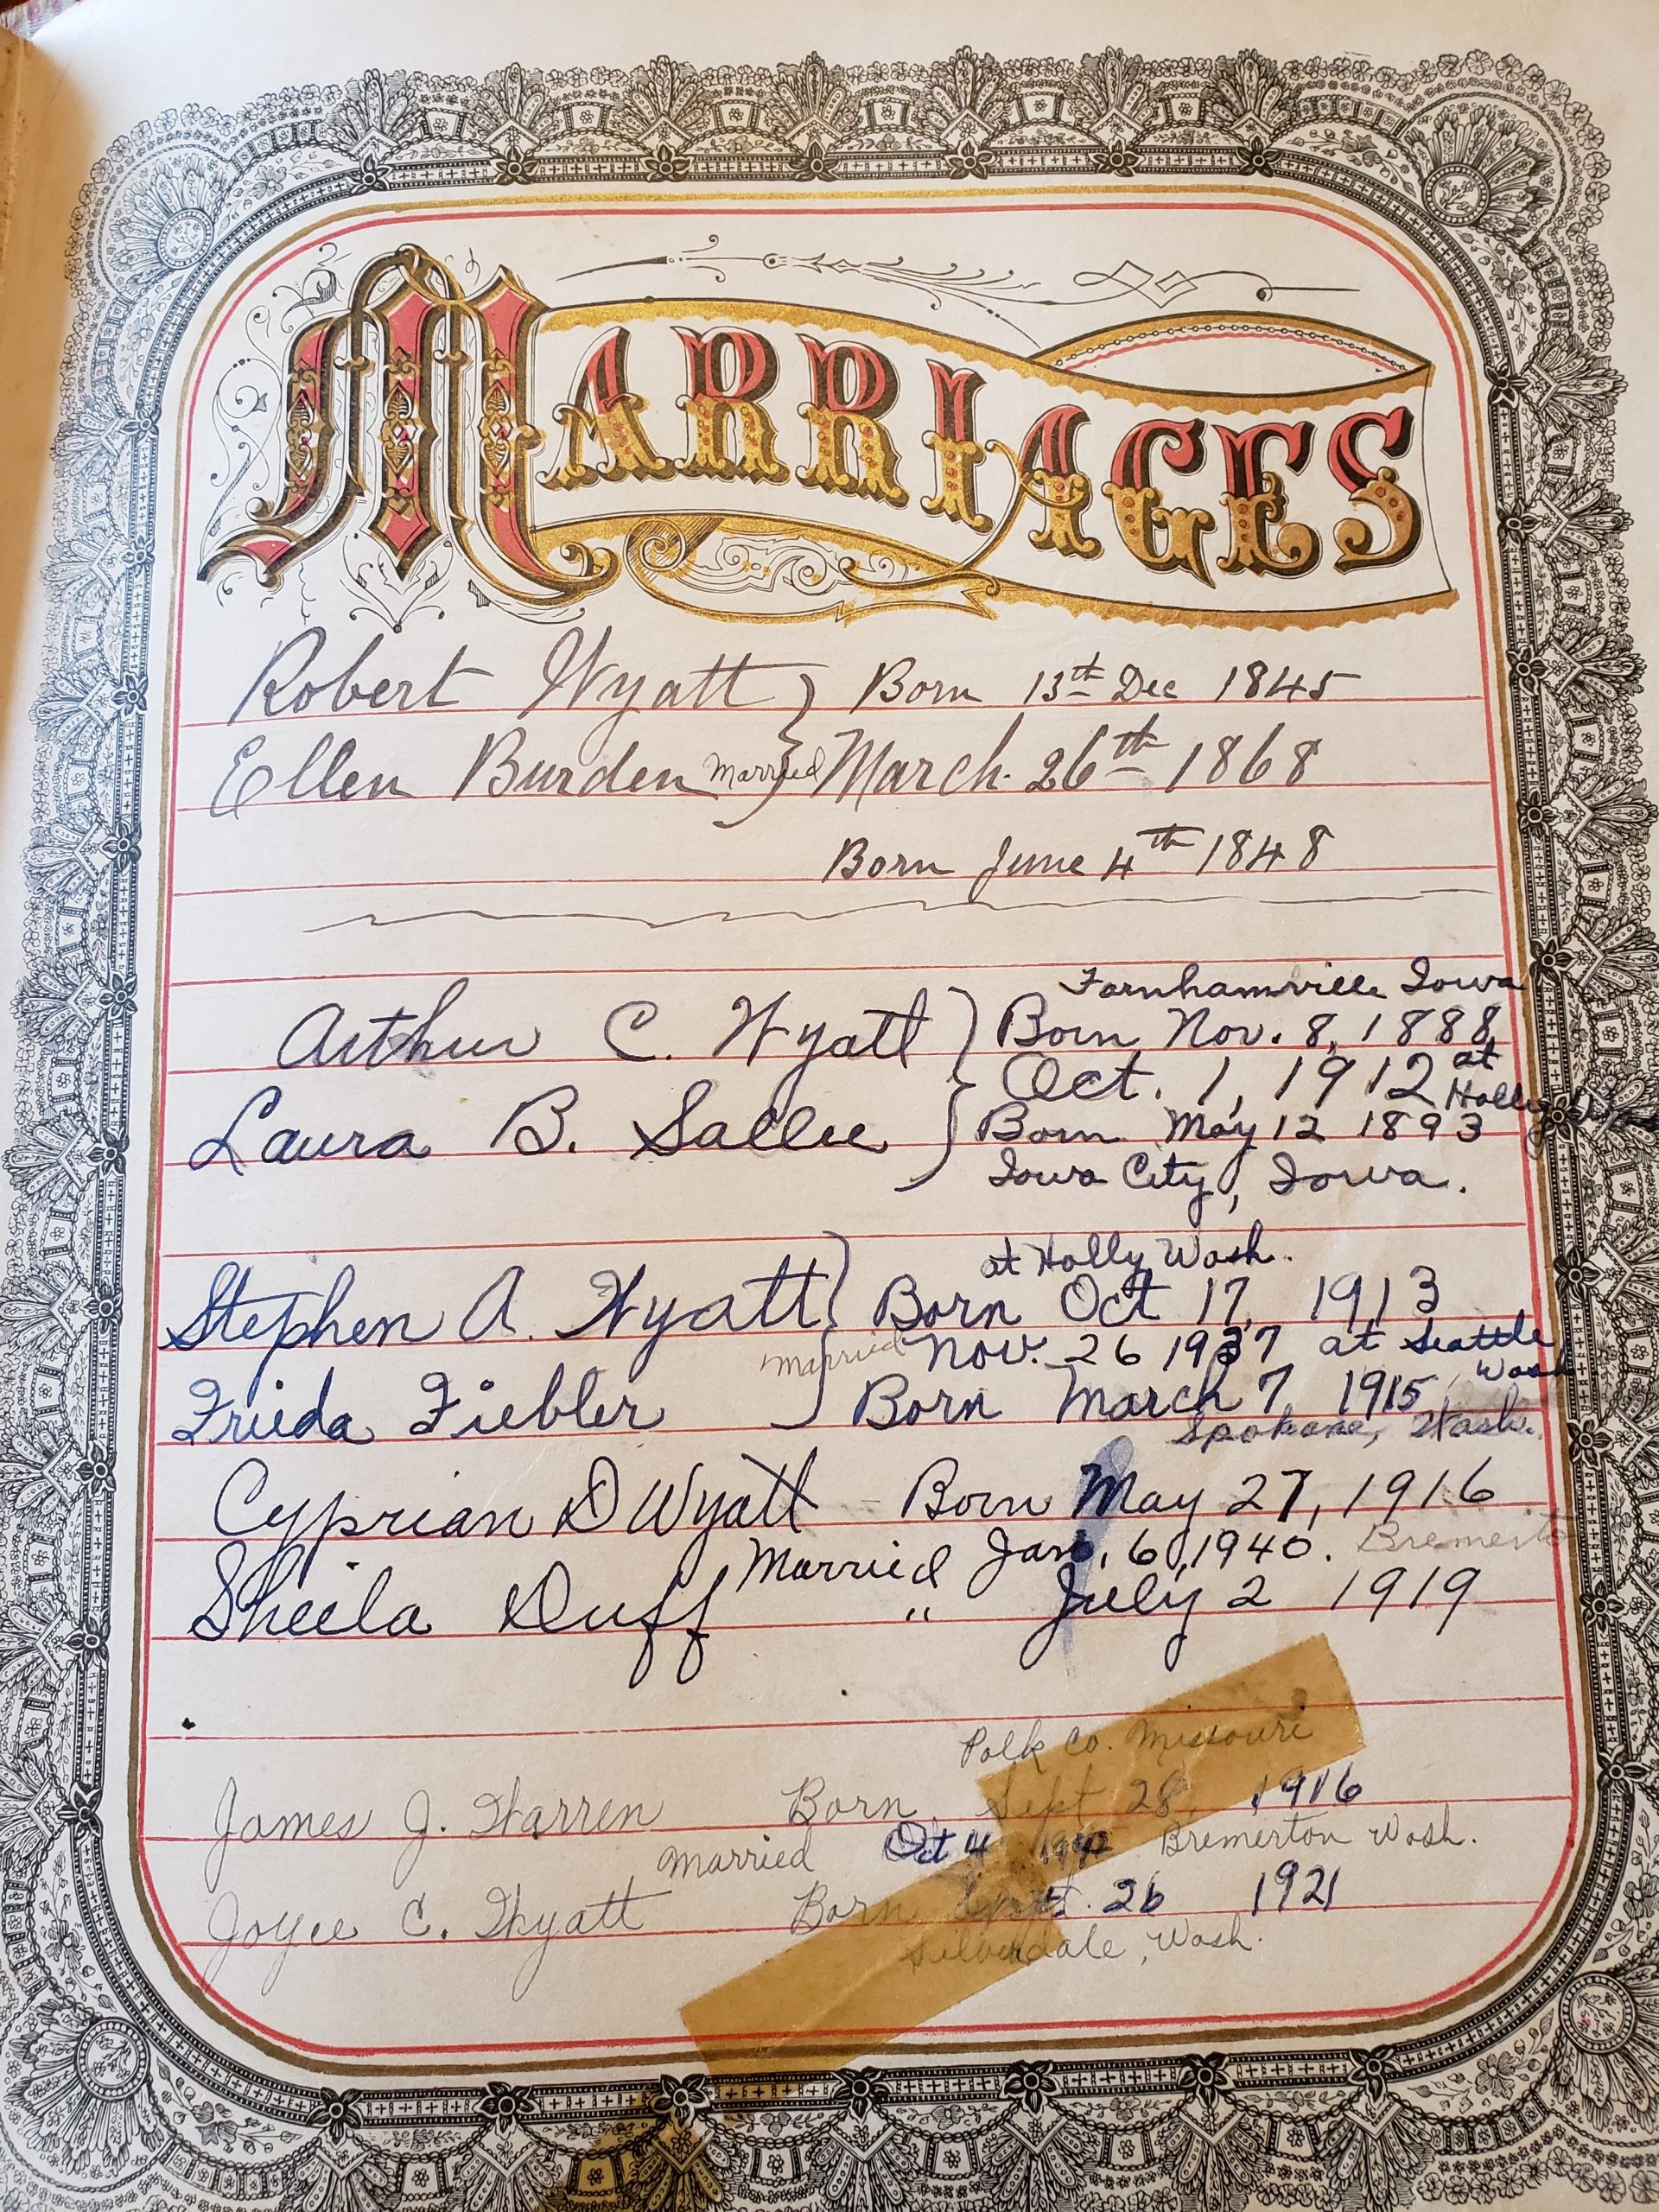 MARRIAGES
Robert Wyatt } Born 13th Dec 1845
Ellen Burden Married } March. 26th 1868
Born June 4th 1848
Farnhamville Iowa
Arthur C. Wyatt } Born Nov. 8, 1888
Oct. 1, 1912 at Holly
Laura B. Sallee } Born May 12 1893
Iowa City, Iowa.
at Holly Wash.
Stephen A. Wyatt } Born Oct 17, 1913
Married Nov. 26 1937 at Seattle Wash
Frieda Fiebler } Born March 7 1915
Spokane, Wash.
Cyprian D Wyatt - Born May 27, 1916
Married Jan. 6, 1940. Bremerto
Sheila Duff " July 2 1919
Polk Co. Missouri
James J. Warren Born Sept 28, 1916
Married Oct 4 Bremerton Wash.
Joyce C. Wyatt Born Sept. 26 1921
Silverdale, Wash.